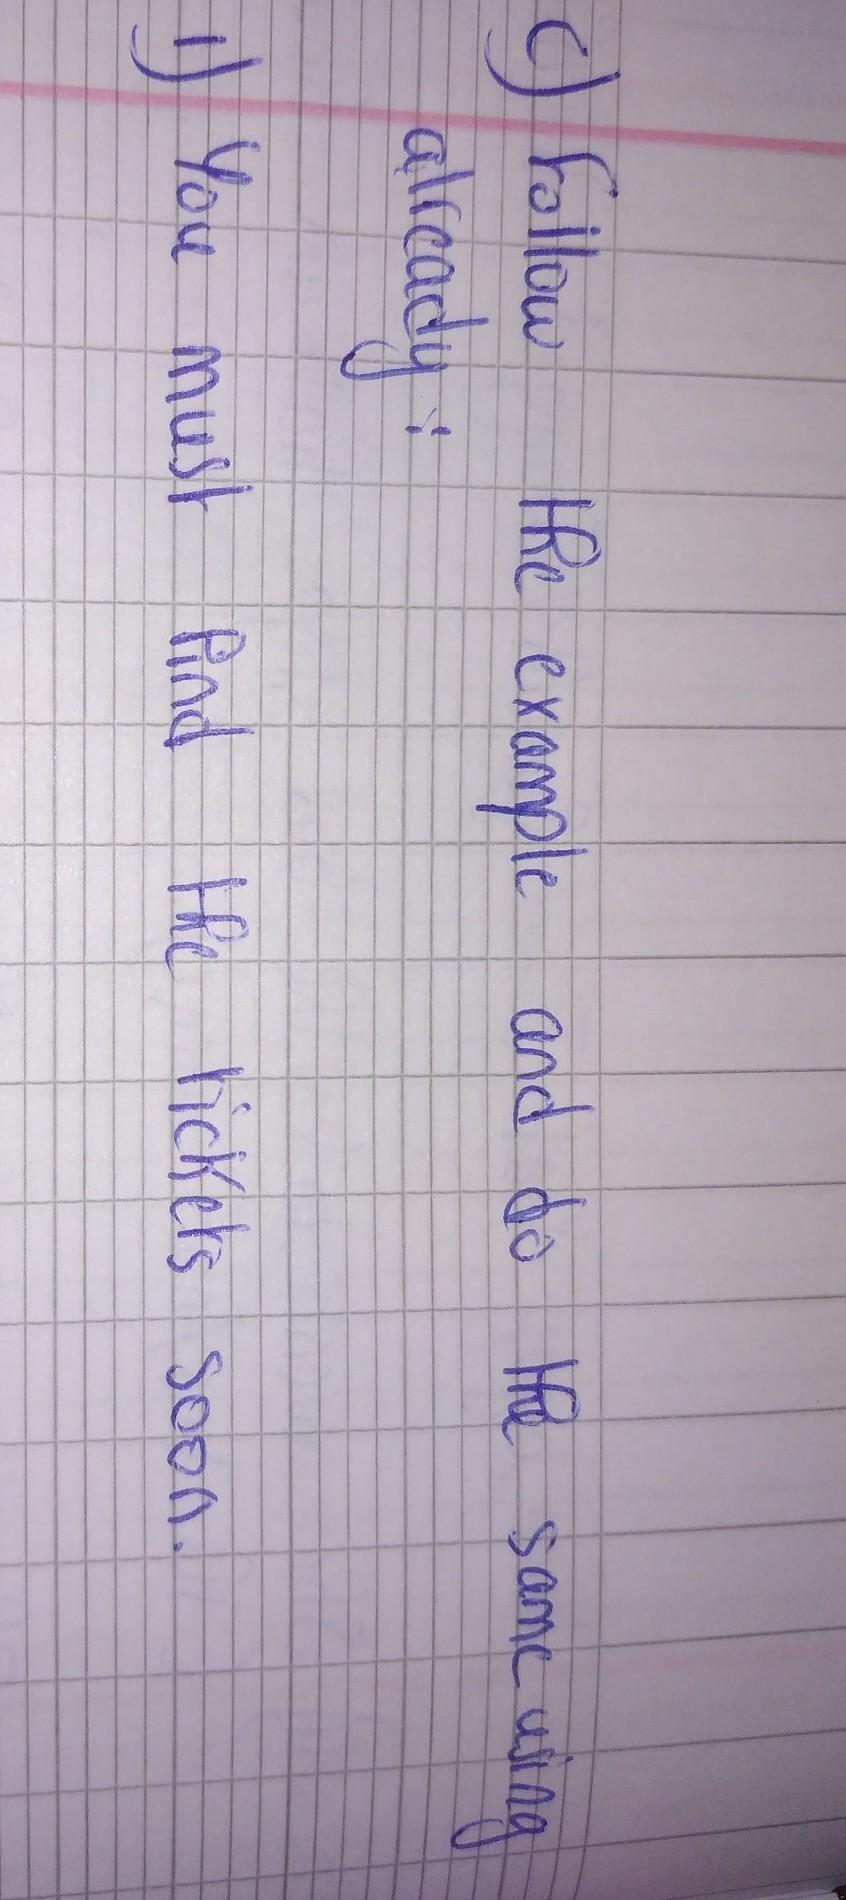 C) Follow the example and do the same using
already :
1) You must find the tickets soon.